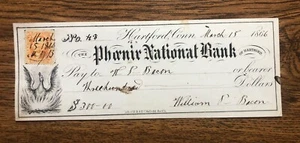 March
15 1866
Hartford, Conn March 15 1866
THE Phœnix National Bank OF HARTFORD
Pay to W. S. Bacon or bearer
Three hundred Dollars
$300-00 William S. Bacon